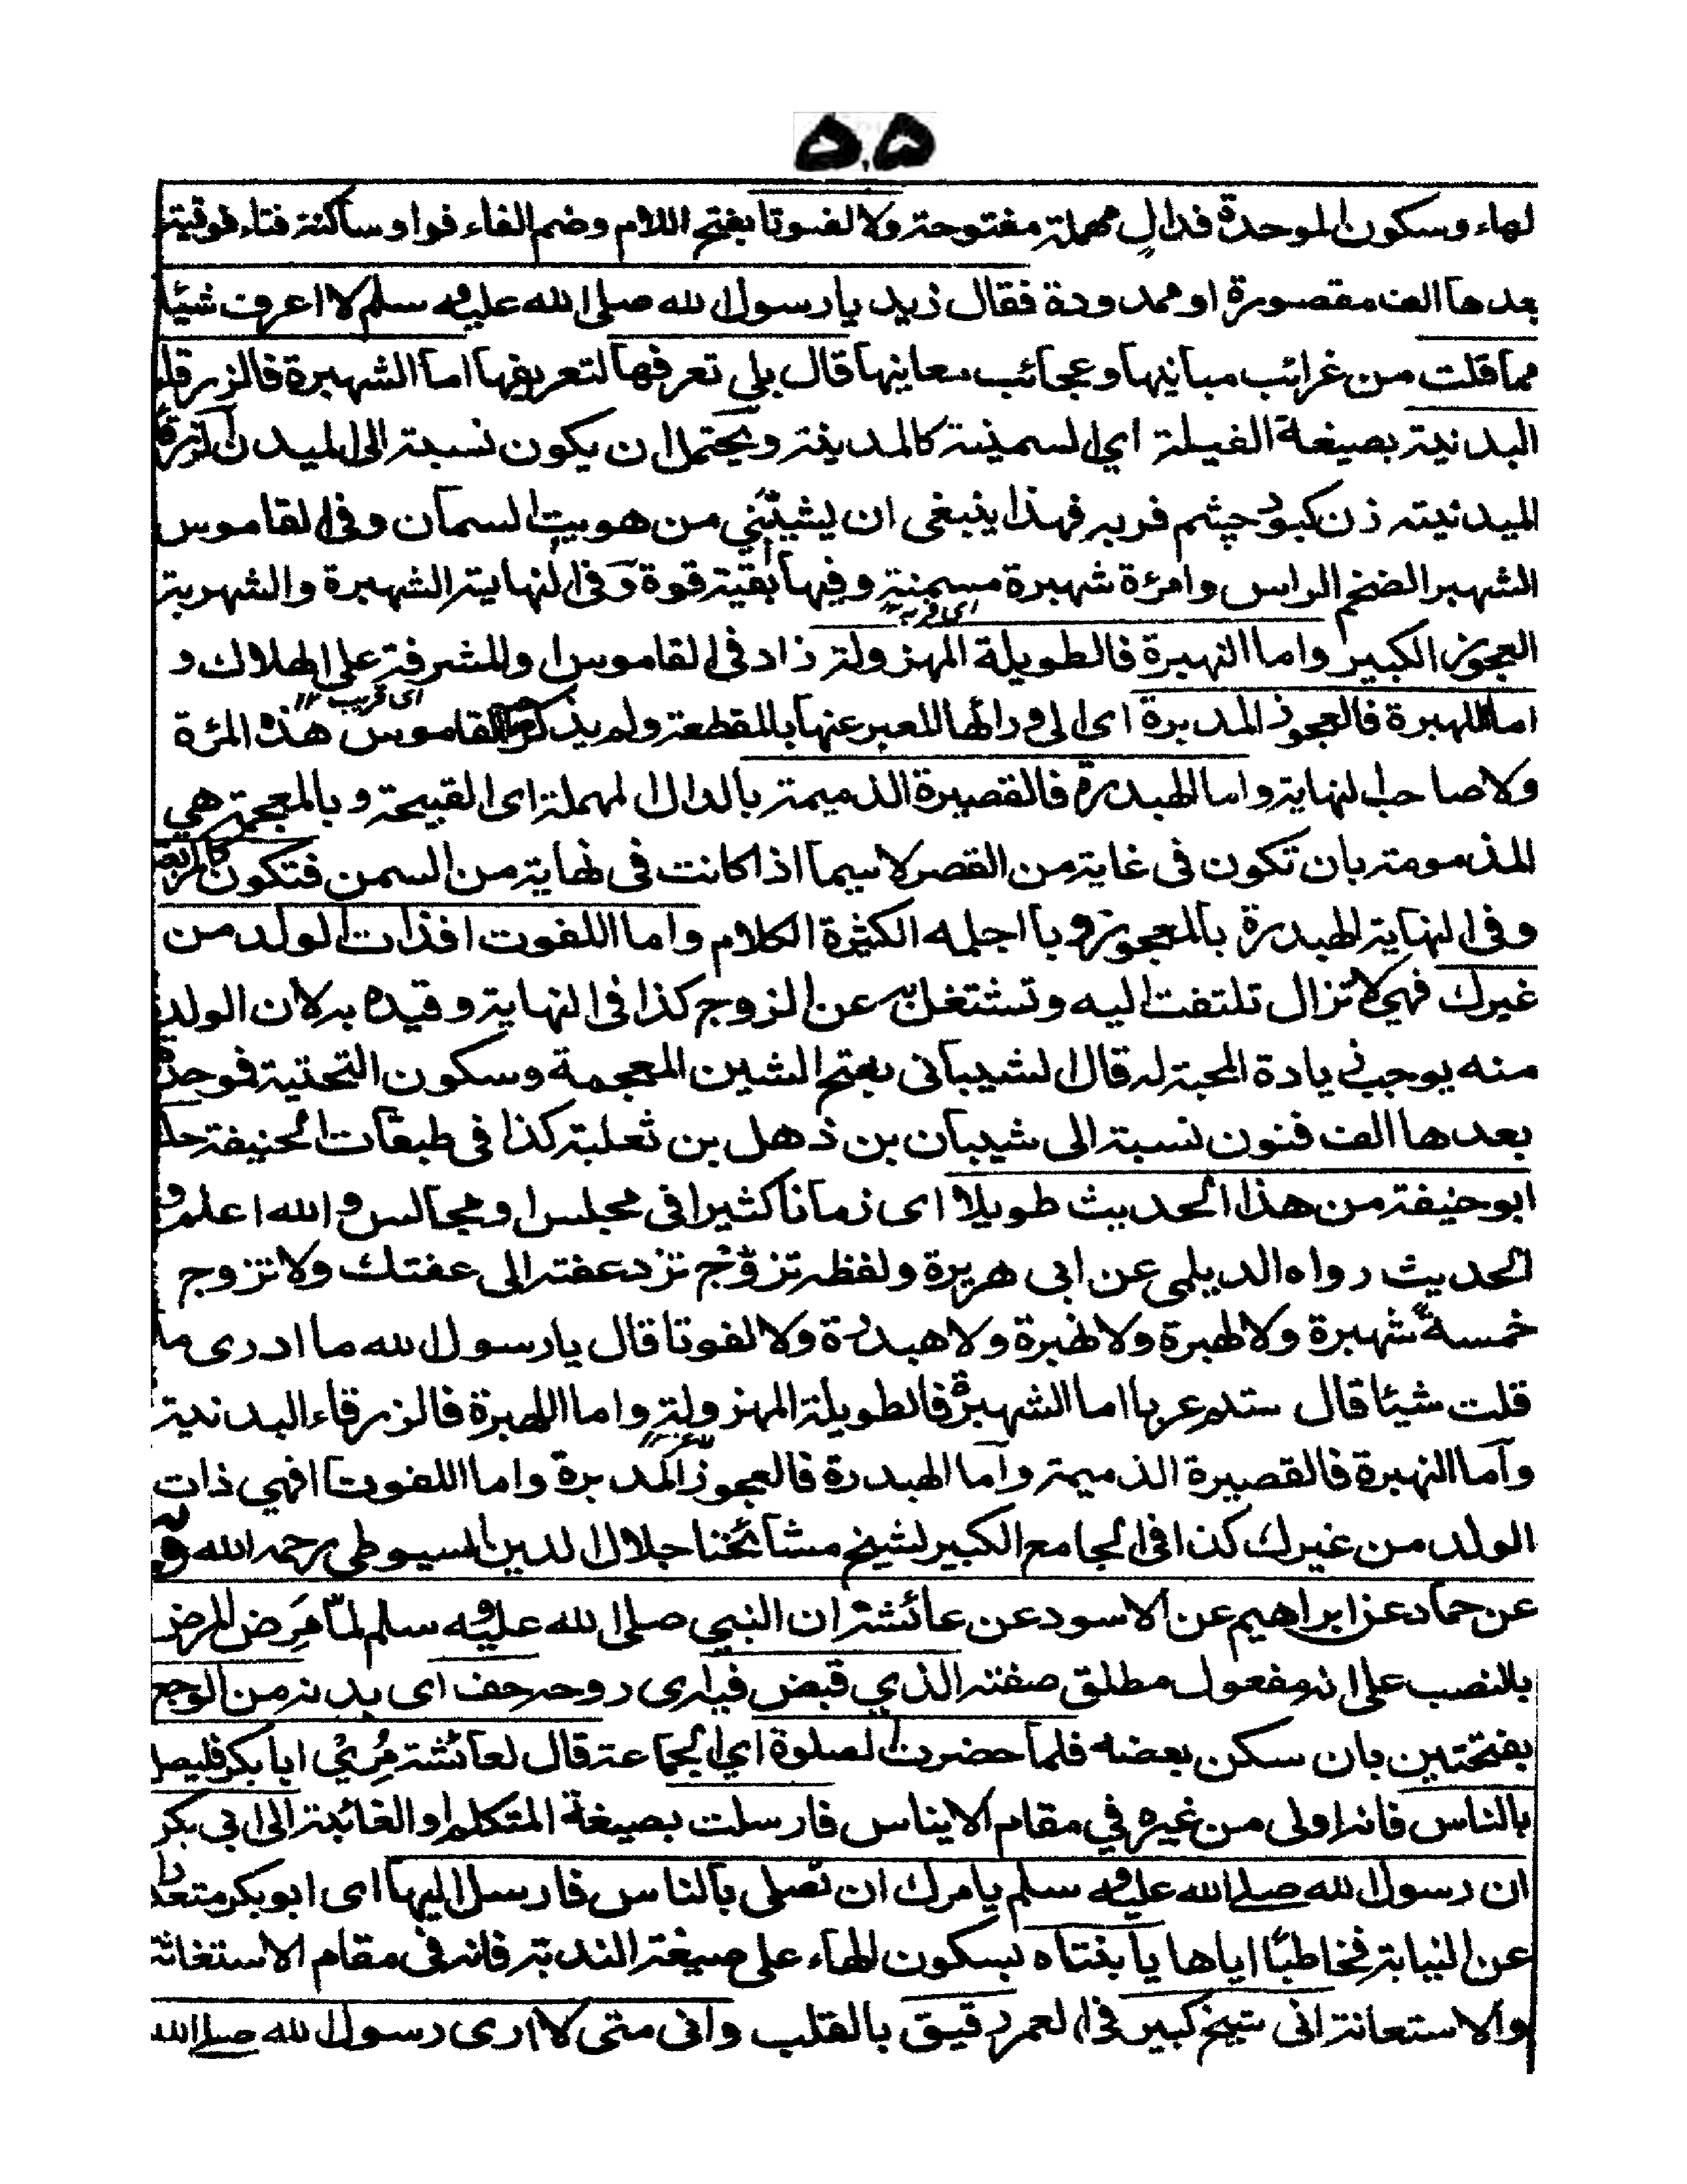 ۵۵
لهاء وسكون الموحدة فدال مهملة مفتوحة ولا لفوتا بفتح اللام وضم الفاء فواو ساكنة فتاء فوقية
بعدها الف مقصورة او ممدودة فقال زيد يا رسول الله صلى الله عليه وسلم لا اعرف شيئا
مما قلت من غرائب مبانيها وعجائب معانيها قال بلى تعرفها لتعريفها اما الشهبرة فالزرقاء
البدنية بصيغة الفيلة اي السمينة كالمدينة ويحتمل ان يكون نسبة الى البدن
البدنية زن كبود چشم فربه فهذا ينبغى ان يشيّئني من هو بيت السمان وفى القاموس
الشهبر الضخم الراس وامرءة شهبرة مسمنة وفيها بقية قوة وفى النهاية الشهبرة والشهربة
اى فربه ١٢
العجوز الكبير واما النهبرة فالطويلة المهزولة زاد فى القاموس او المشرفة على الهلاك و
اى قريب ١٢
اما اللهبرة فالعجوز المدبرة اى الى ورائها المعبر عنها بالمقطعة ولم يذكر القاموس هذه المرءة
ولا صاحب النهاية واما الهبدرة فالقصيرة الذميمة بالدال المهملة اى القبيحة وبالمعجمة هي
المذمومة بان تكون فى غاية من القصر لاسيما اذا كانت فى نهاية من السمن فتكون
وفى النهاية الهبدرة بالعجوز وبا اجمله الكثيرة الكلام واما اللفوت افذات الولد من
غيرك فهي لا تزال تلتفت اليه وتشتغل به عن الزوج كذا فى النهاية وقيده به لان الولد
منه يوجب زيادة المحبة له قال الشيبانى بفتح الشين المعجمة وسكون التحتية فوحدة
بعدها الف فنون نسبة الى شيبان بن ذهل بن ثعلبة كذا فى طبقات الحنيفة
ابو حنيفة من هذا الحديث طويلا اى زمانا كثيرا فى مجلس او مجالس والله اعلم و
الحديث رواه الديلمى عن ابى هريرة ولفظه تزوّج تزد عفة الى عفتك ولا تزوج
خمسة شهبرة ولا لهبرة ولا نهبرة ولا هبدرة ولا لفوتا قال يا رسول الله ما ادرى ما
قلت شيئا قال ستم عربا اما الشهبرة فالطويلة المهزولة واما اللهبرة فالزرقاء البدنية
واما النهبرة فالقصيرة الذميمة واما الهبدرة فالعجوز المدبرة واما اللفوت افهي ذات
الولد من غيرك كذا فى الجامع الكبير لشيخ مشائخنا جلال الدين السيوطى رحمه الله وبه
عن حماد عن ابراهيم عن الاسود عن عائشة ان النبي صلى الله عليه وسلم لمّا مَرِض المرض
بالنصب على انه مفعول مطلق صفته الذي قبض فيه اى روحه خف اى بدنه من الوجع
بفتحتين بان سكن بعضه فلما حضرت الصلوة اي الجماعة قال لعائشة مُرِيْ ابا بكر فليصل
بالناس فانه اولى من غيره في مقام الايناس فارسلت بصيغة المتكلم او الغائبة الى ابى بكر
ان رسول الله صلى الله عليه وسلم يامرك ان تصلى بالناس فارسل اليها اى ابو بكر متعذرا
عن النيابة فخاطبًا اياها يا بنتاه بسكون الهاء على صيغة الندبة فانه فى مقام الاستغاثة
والاستعانة انى شيخ كبير فى العمر رقيق بالقلب وانى متى لا ارى رسول الله صلى الله